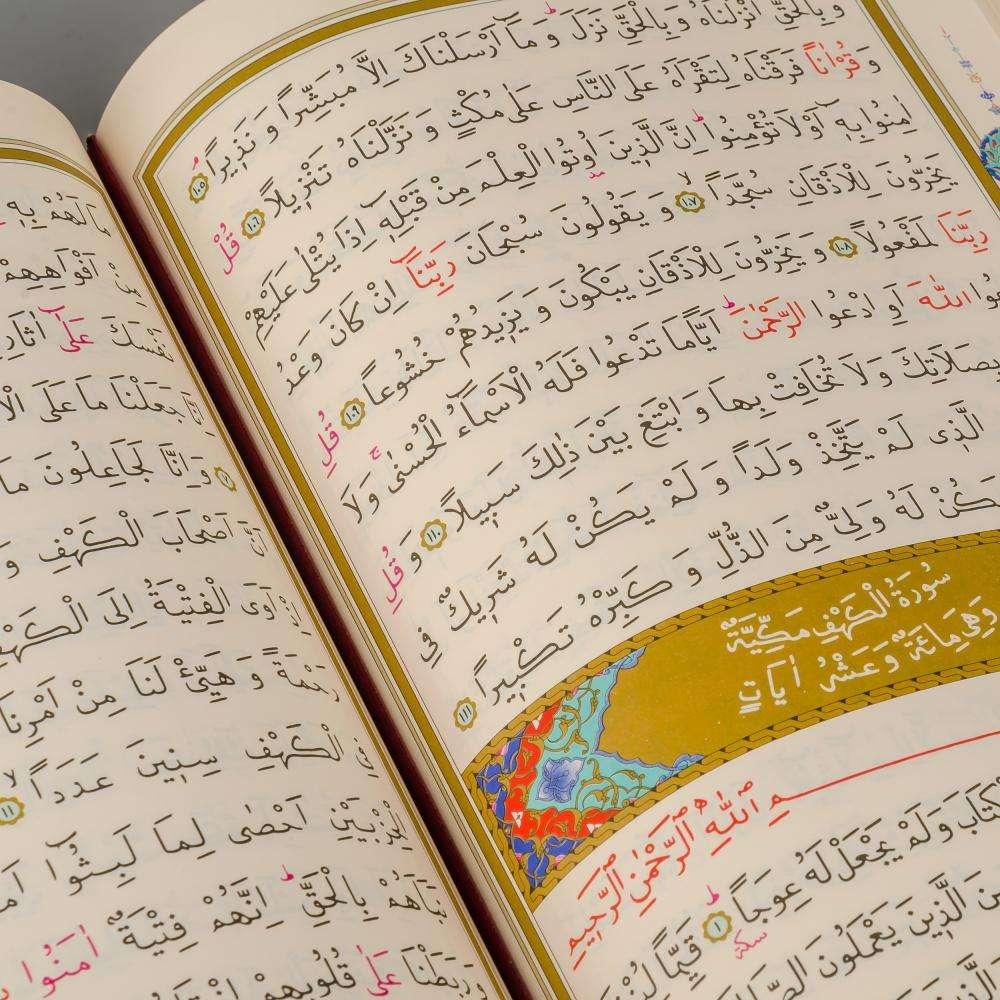 وَبِالْحَقِّ اَنْزَلْنَاهُ وَبِالْحَقِّ نَزَلَ وَمَٓا اَرْسَلْنَاكَ اِلَّا مُبَشِّرًا وَنَذِيرًا ﴿١٠٥﴾
وَقُرْاٰنًا فَرَقْنَاهُ لِتَقْرَاَهُ عَلَى النَّاسِ عَلٰى مُكْثٍ وَنَزَّلْنَاهُ تَنْزِيلًا ﴿١٠٦﴾ قُلْ
اٰمِنُوا بِهٖٓ اَوْ لَا تُؤْمِنُوا اِنَّ الَّذٖينَ اُوتُوا الْعِلْمَ مِنْ قَبْلِهٖٓ اِذَا يُتْلٰى عَلَيْهِمْ
يَخِرُّونَ لِلْاَذْقَانِ سُجَّدًا ﴿١٠٧﴾ وَيَقُولُونَ سُبْحَانَ رَبِّنَٓا اِنْ كَانَ وَعْدُ
رَبِّنَا لَمَفْعُولًا ﴿١٠٨﴾ وَيَخِرُّونَ لِلْاَذْقَانِ يَبْكُونَ وَيَزٖيدُهُمْ خُشُوعًا ﴿١٠٩﴾ قُلِ
اللّٰهَ اَوِ ادْعُوا الرَّحْمٰنَ اَيًّامَا تَدْعُوا فَلَهُ الْاَسْمَٓاءُ الْحُسْنٰى وَلَا
بِصَلَاتِكَ وَلَا تُخَافِتْ بِهَا وَابْتَغِ بَيْنَ ذٰلِكَ سَبٖيلًا ﴿١١٠﴾ وَقُلِ
الَّذٖى لَمْ يَتَّخِذْ وَلَدًا وَلَمْ يَكُنْ لَهُ شَرٖيكٌ فِى
يَكُنْ لَهُ وَلِىٌّ مِنَ الذُّلِّ وَكَبِّرْهُ تَكْبٖيرًا ﴿١١١﴾
سُورَةُ الْكَهْفِ مَكِّيَّةٌ
وَهِىَ مِائَةٌ وَعَشْرُ اٰيَاتٍ
بِسْمِ اللّٰهِ الرَّحْمٰنِ الرَّحٖيمِ
الْكِتَابَ وَلَمْ يَجْعَلْ لَهُ عِوَجًا ﴿١﴾ قَيِّمًا
الَّذٖينَ يَعْمَلُونَ
مَا لَهُمْ بِهٖ
اَفْوَاهِهِمْ
نَفْسَكَ عَلٰٓى اٰثَارِ
جَعَلْنَا مَا عَلَى
وَاِنَّا لَجَاعِلُونَ مَا
اَصْحَابَ الْكَهْفِ وَ
اَوَى الْفِتْيَةُ اِلَى الْكَهْفِ
رَحْمَةً وَهَيِّئْ لَنَا مِنْ اَمْرِنَا
الْكَهْفِ سِنٖينَ عَدَدًا ﴿١١﴾
الْحِزْبَيْنِ اَحْصٰى لِمَا لَبِثُٓوا
بِالْحَقِّ اِنَّهُمْ فِتْيَةٌ اٰمَنُوا
وَرَبَطْنَا عَلٰى قُلُوبِهِمْ